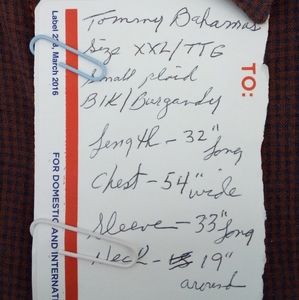 Tommy Bahamas
Size XXL/TTG
small plaid
Blk/Burgandy
length - 32" long
Chest - 54" wide
Sleeve - 33" long
Neck - 19" around
TO:
Label 228, March 2016
FOR DOMESTIC AND INTERNATI